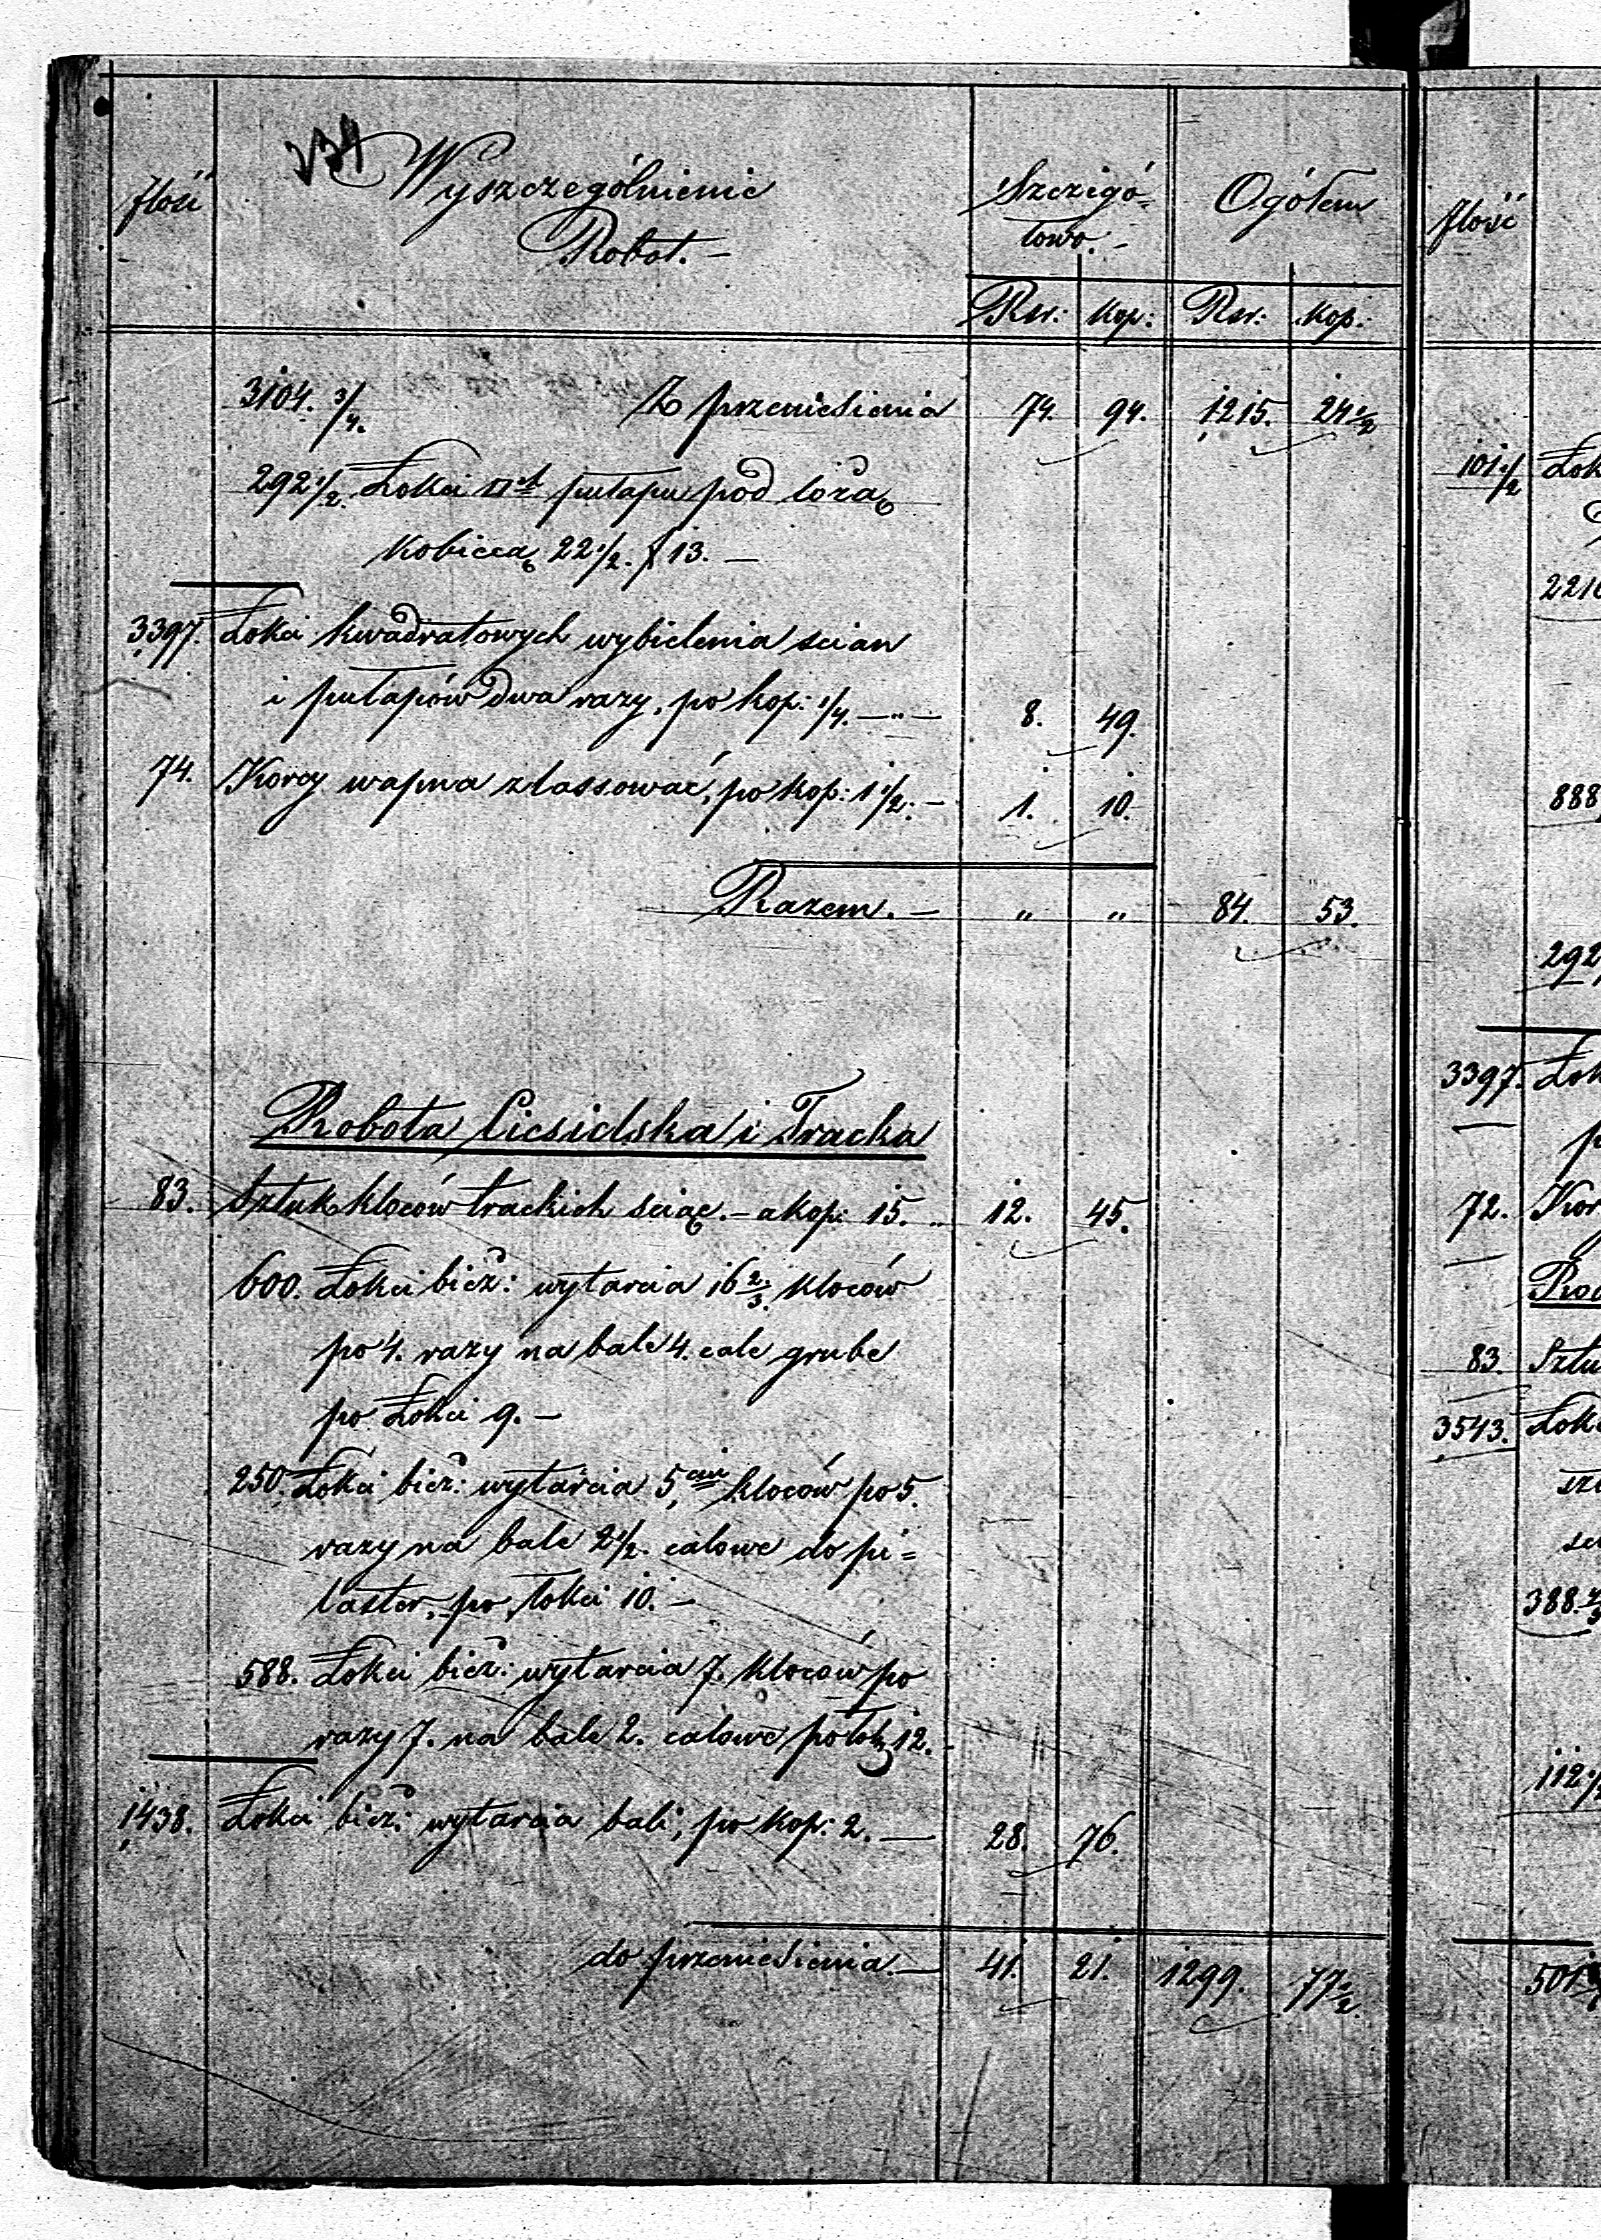 234
Jlość Wyszczególnienie Robot. — Szczegó= towo. — Ogółem
Rsr: kop: Rsr: kop:
3104. 3/4. Z przeniesienia 74. 94. 1215. 24 1/2
292 1/2. Łokci □ch pułapu pod lożą
Kobiecą 22 1/2. f 13. —
3397. Łokci kwadratowych wybielenia scian
i pułapów dwa razy, po kop: 1/4. — „ — 8. 49.
74. Korcy wapna zlassować, po kop: 1 1/2. — 1. 10.
Razem. — „ „ 84. 53.
Robota Ciesielska i Tracka
83. Sztuk kloców trackich sciąć. — a kop: 15. „ 12. 45.
600. Łokci bież: wytarcia 16 2/3. kloców
po 4. razy na bale 4. cale grube
po Łokci 9. —
250. Łokci bież: wytarcia 5ciu kloców po 5.
razy na bale 2 1/2. calowe do pi=
laster, po łokci 10. —
588. Łokci bież: wytarcia 7. kloców po
razy 7. na bale 2. calowe po łok 12. —
1438. Łokci bież: wytarcia bali, po kop: 2. — 28. 76.
do przeniesienia. — 41. 21. 1299. 77 1/2.
Jlość
101 1/2 Łok
221
888
292
3397. Łok
p
72. Kor
83. Sztu
3543. Łok
388. 2/3
112 1/2
501